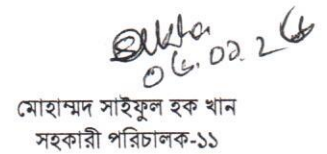 ০৫.০১.২৬
মোহাম্মদ সাইফুল হক খান
সহকারী পরিচালক-১১